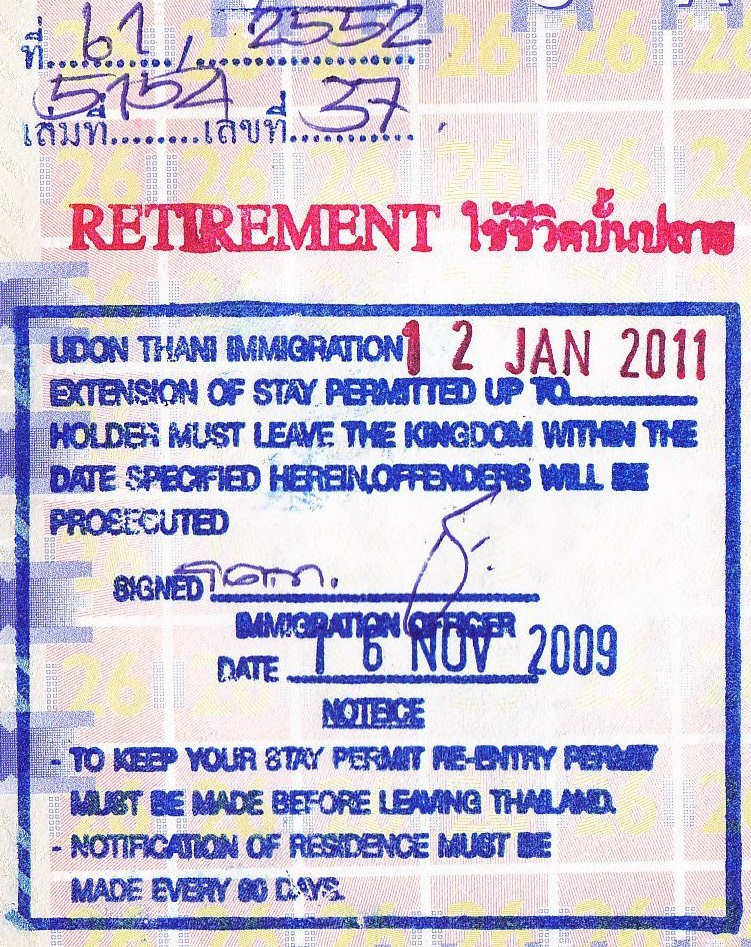 ที่ 61 / 2552
เล่มที่ 5154 เลขที่ 37
RETIREMENT ใช้ชีวิตบั้นปลาย
UDON THANI IMMIGRATION 12 JAN 2011
EXTENSION OF STAY PERMITTED UP TO
HOLDER MUST LEAVE THE KINGDOM WITHIN THE
DATE SPECIFIED HEREIN,OFFENDERS WILL BE
PROSECUTED
SIGNED
IMMIGRATION OFFICER
DATE 16 NOV 2009
NOTEICE
- TO KEEP YOUR STAY PERMIT RE-ENTRY PERMIT
MUST BE MADE BEFORE LEAVING THAILAND.
- NOTIFICATION OF RESIDENCE MUST BE
MADE EVERY 90 DAYS.